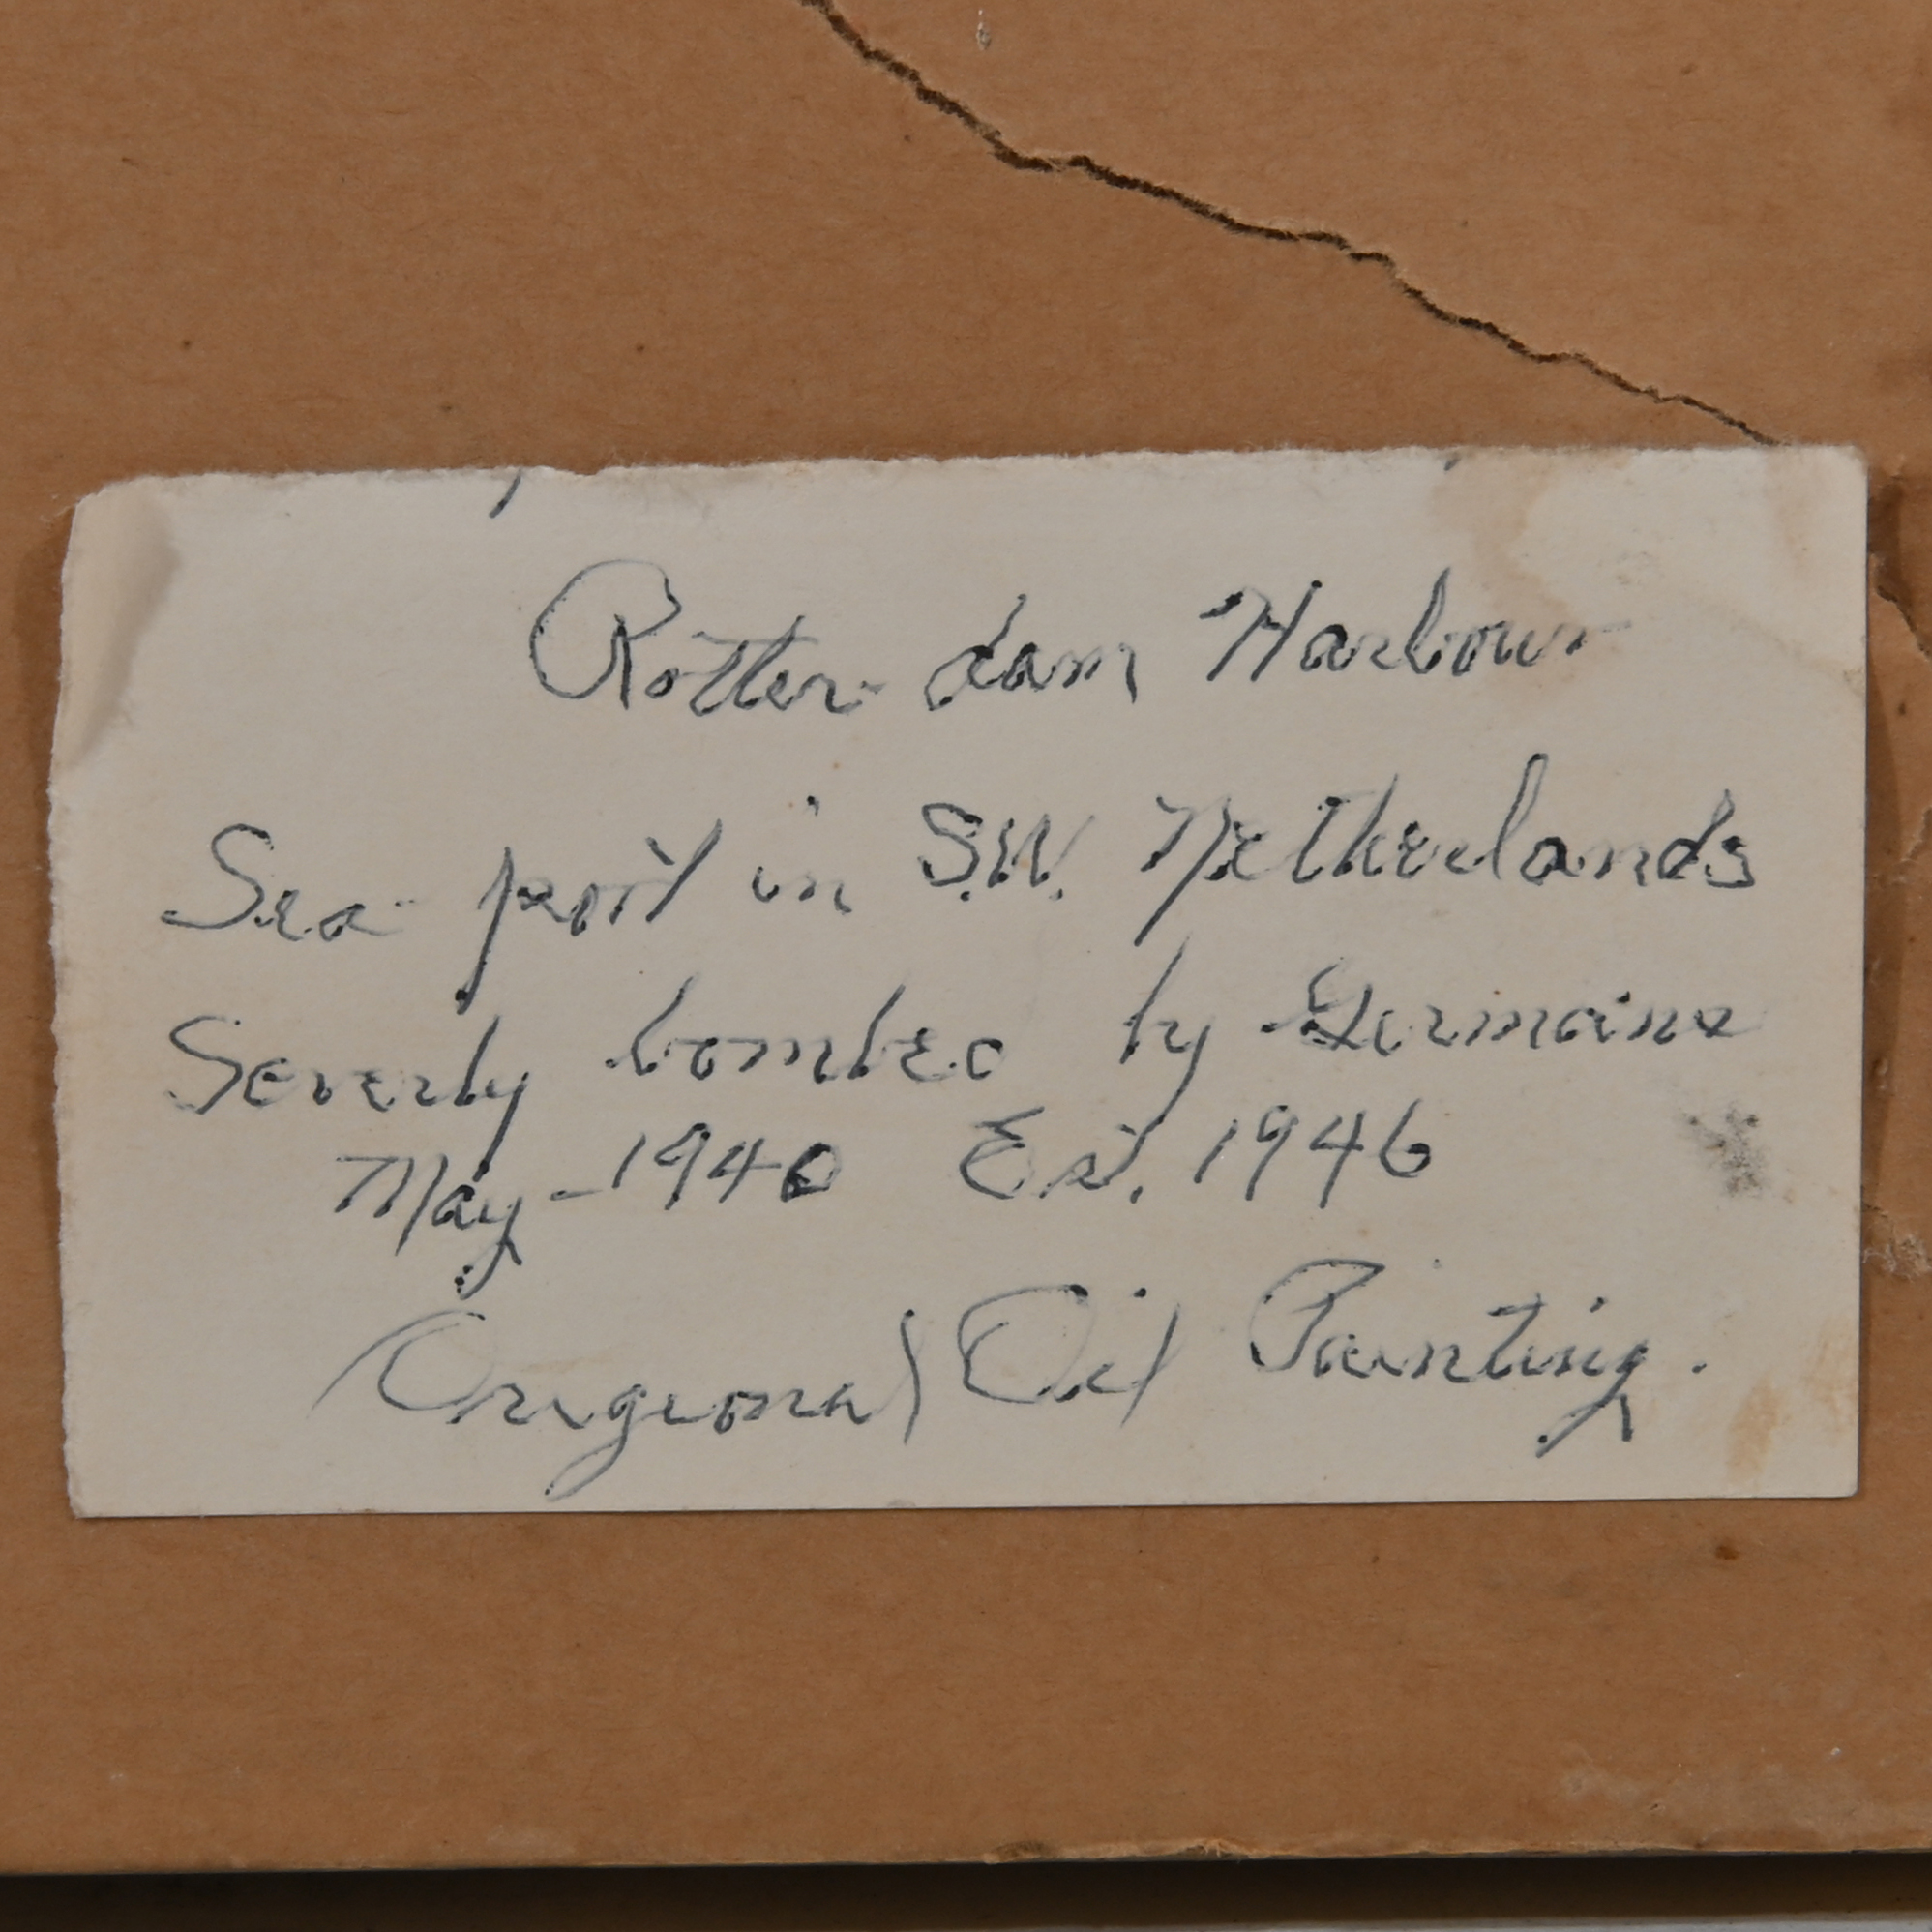 Rotter-dam Harbour
Sea-port in S.W. Netherlands
Severly bombed by Germains
May-1940 Est. 1946
Origional Oil Painting.